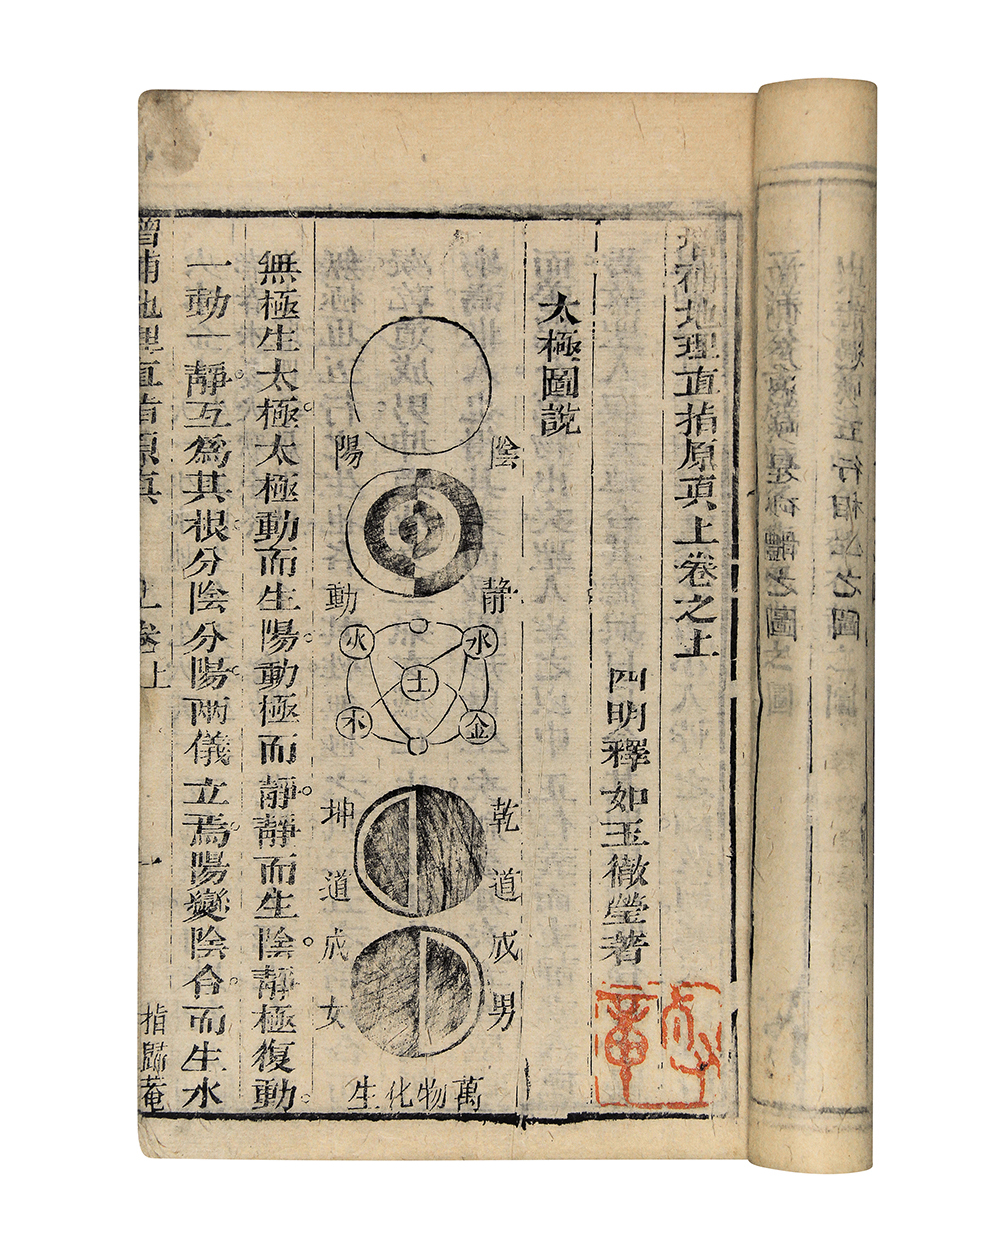 增補地理直指原真上卷之上
四明釋如玉徹瑩著
太極圖說
陰
陽
靜
動
水
火
土
金
木
乾道成男
坤道成女
萬物化生
無極生太極。太極動而生陽。動極而靜。靜而生陰。靜極復動。
一動一靜。互爲其根。分陰分陽。兩儀立焉。陽變陰合。而生水
增補地理直指原真
上卷上
一
指歸菴